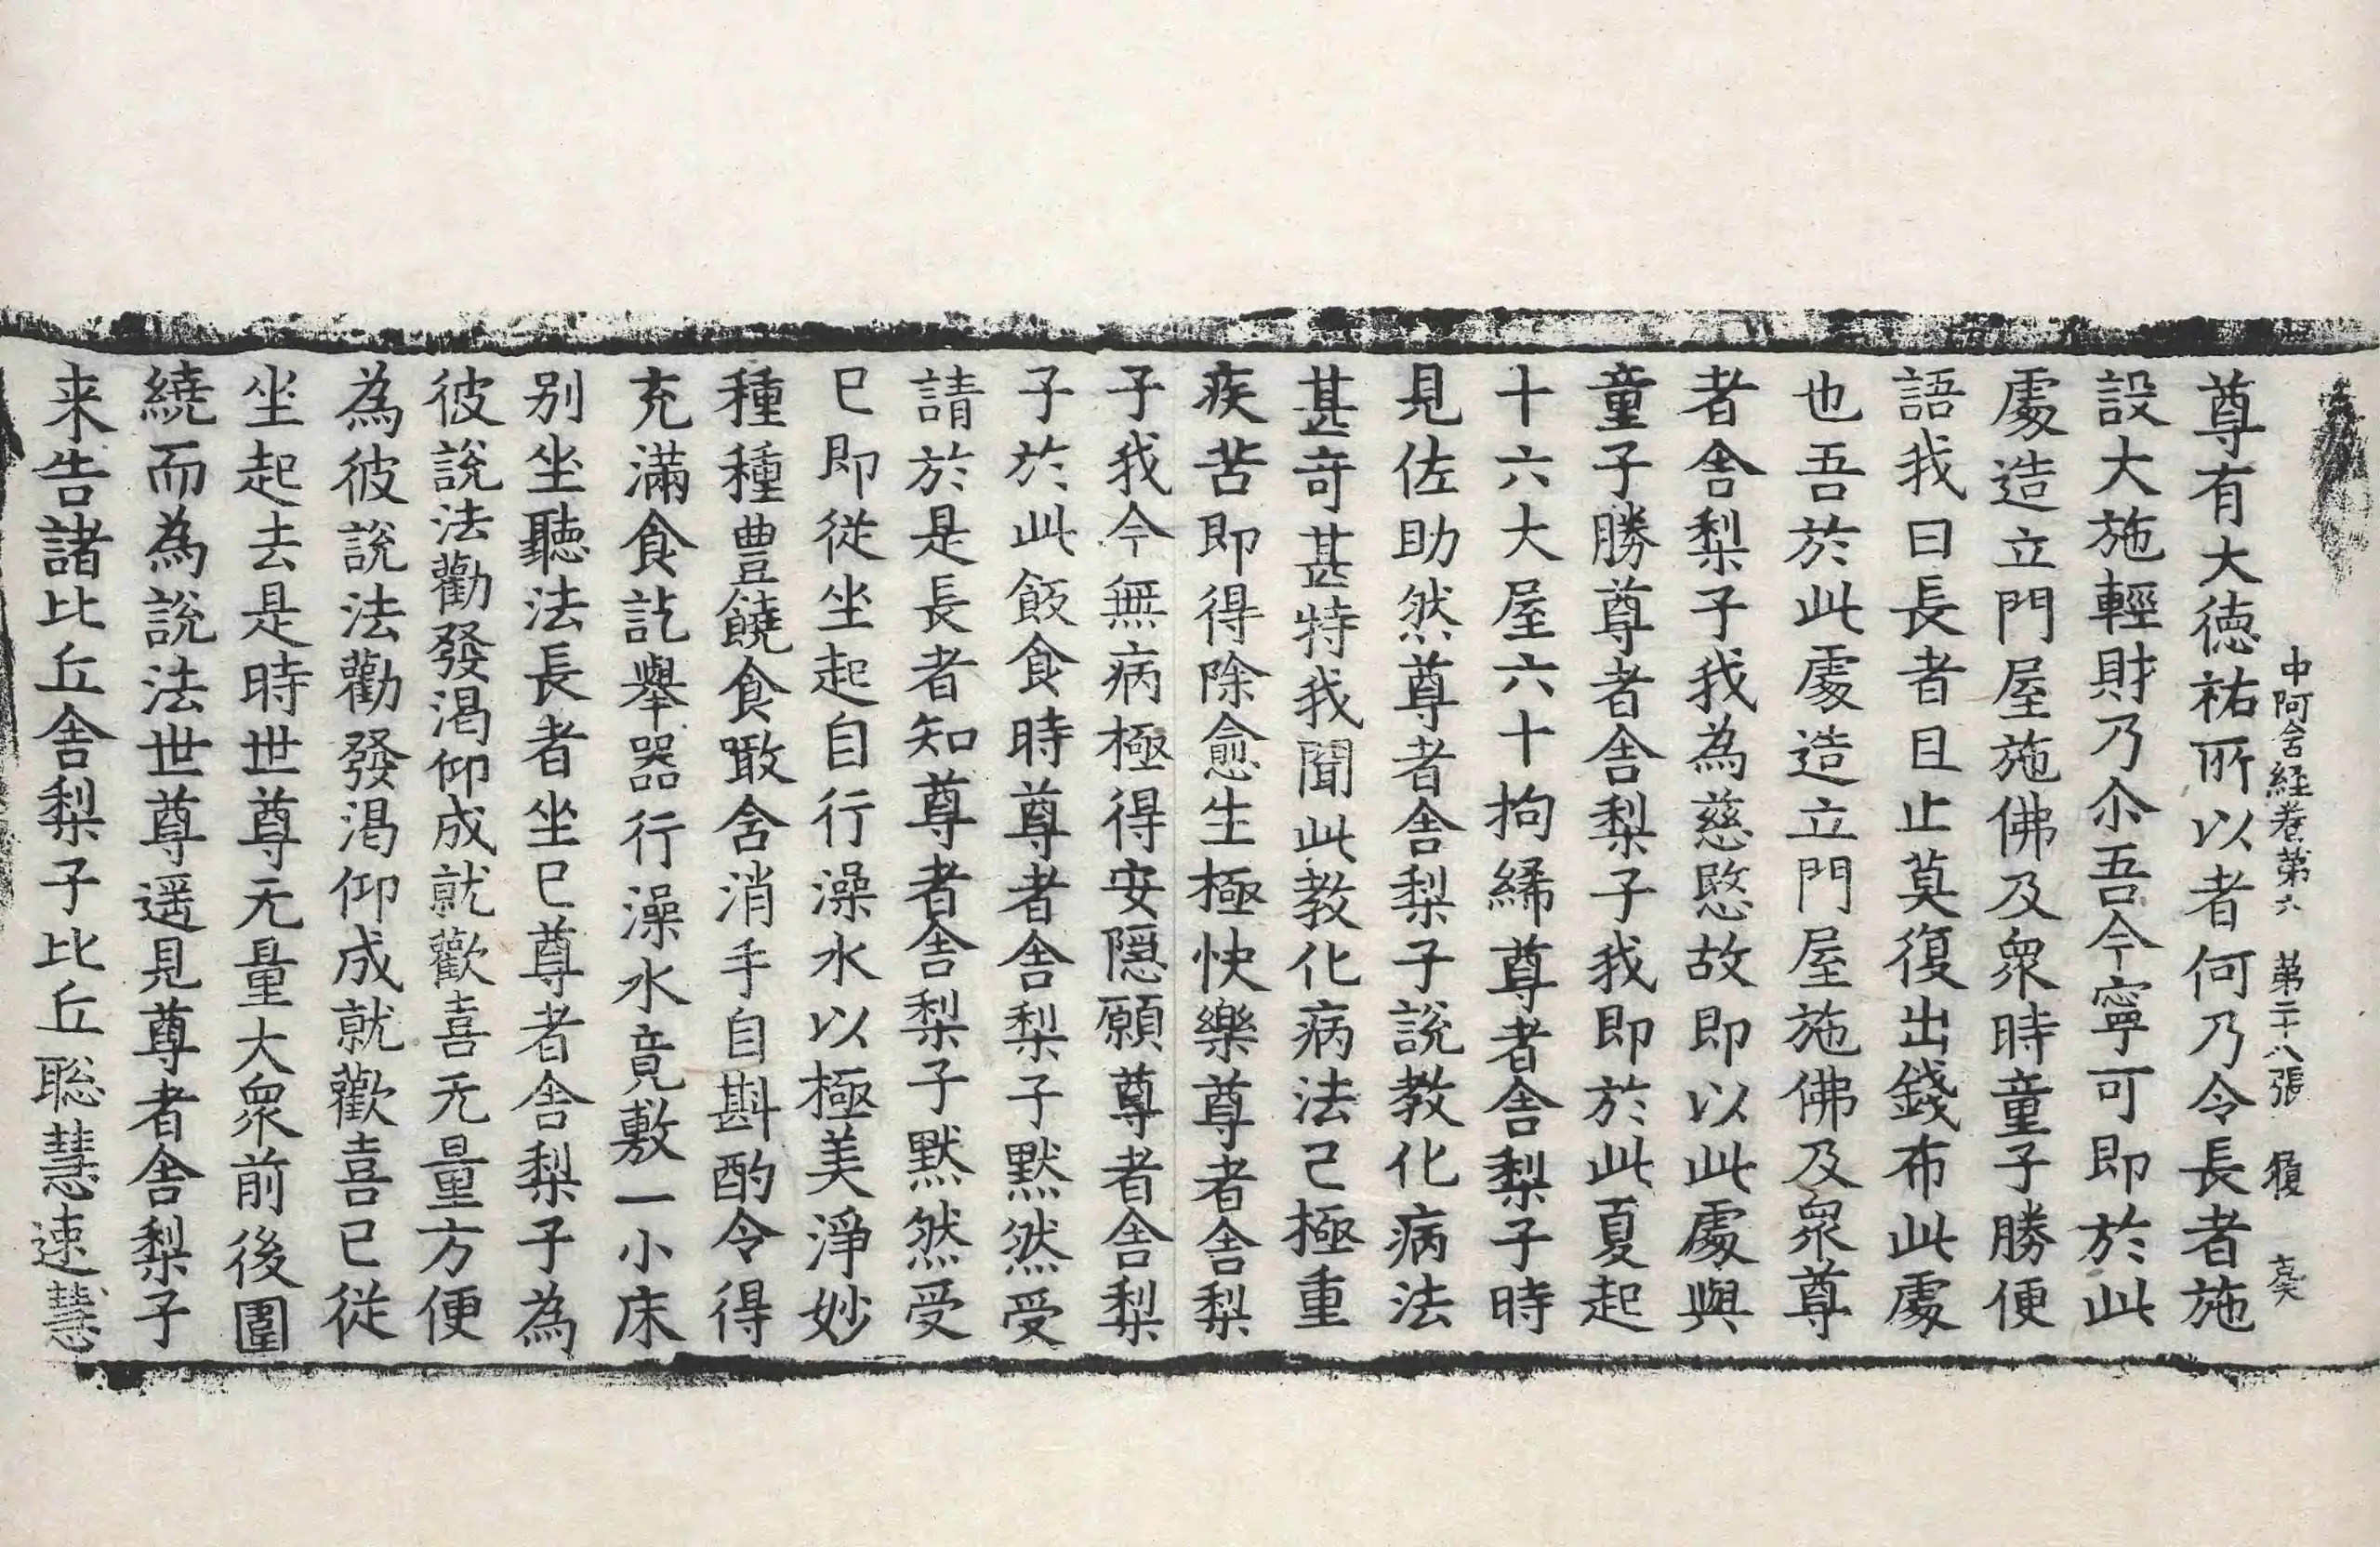 中阿含経卷第六　第二十八張　履
尊有大徳祐所以者何乃令長者施
設大施輕財乃尒吾今寧可即於此
處造立門屋施佛及衆時童子勝便
語我曰長者且止莫復出錢布此處
也吾於此處造立門屋施佛及衆尊
者舍梨子我為慈愍故即以此處與
童子勝尊者舍梨子我即於此夏起
十六大屋六十拘絺尊者舍梨子時
見佐助然尊者舍梨子說教化病法
甚奇甚特我聞此教化病法已極重
疾苦即得除愈生極快樂尊者舍梨
子我今無病極得安隱願尊者舍梨
子於此飯食時尊者舍梨子黙然受
請於是長者知尊者舍梨子黙然受
已即從坐起自行澡水以極美淨妙
種種豊饒食噉含消手自斟酌令得
充滿食訖舉器行澡水竟敷一小床
别坐聽法長者坐已尊者舍梨子為
彼說法勸發渴仰成就歡喜无量方便
為彼說法勸發渴仰成就歡喜已從
坐起去是時世尊无量大衆前後圍
繞而為說法世尊遥見尊者舍梨子
来告諸比丘舍梨子比丘聡慧速慧